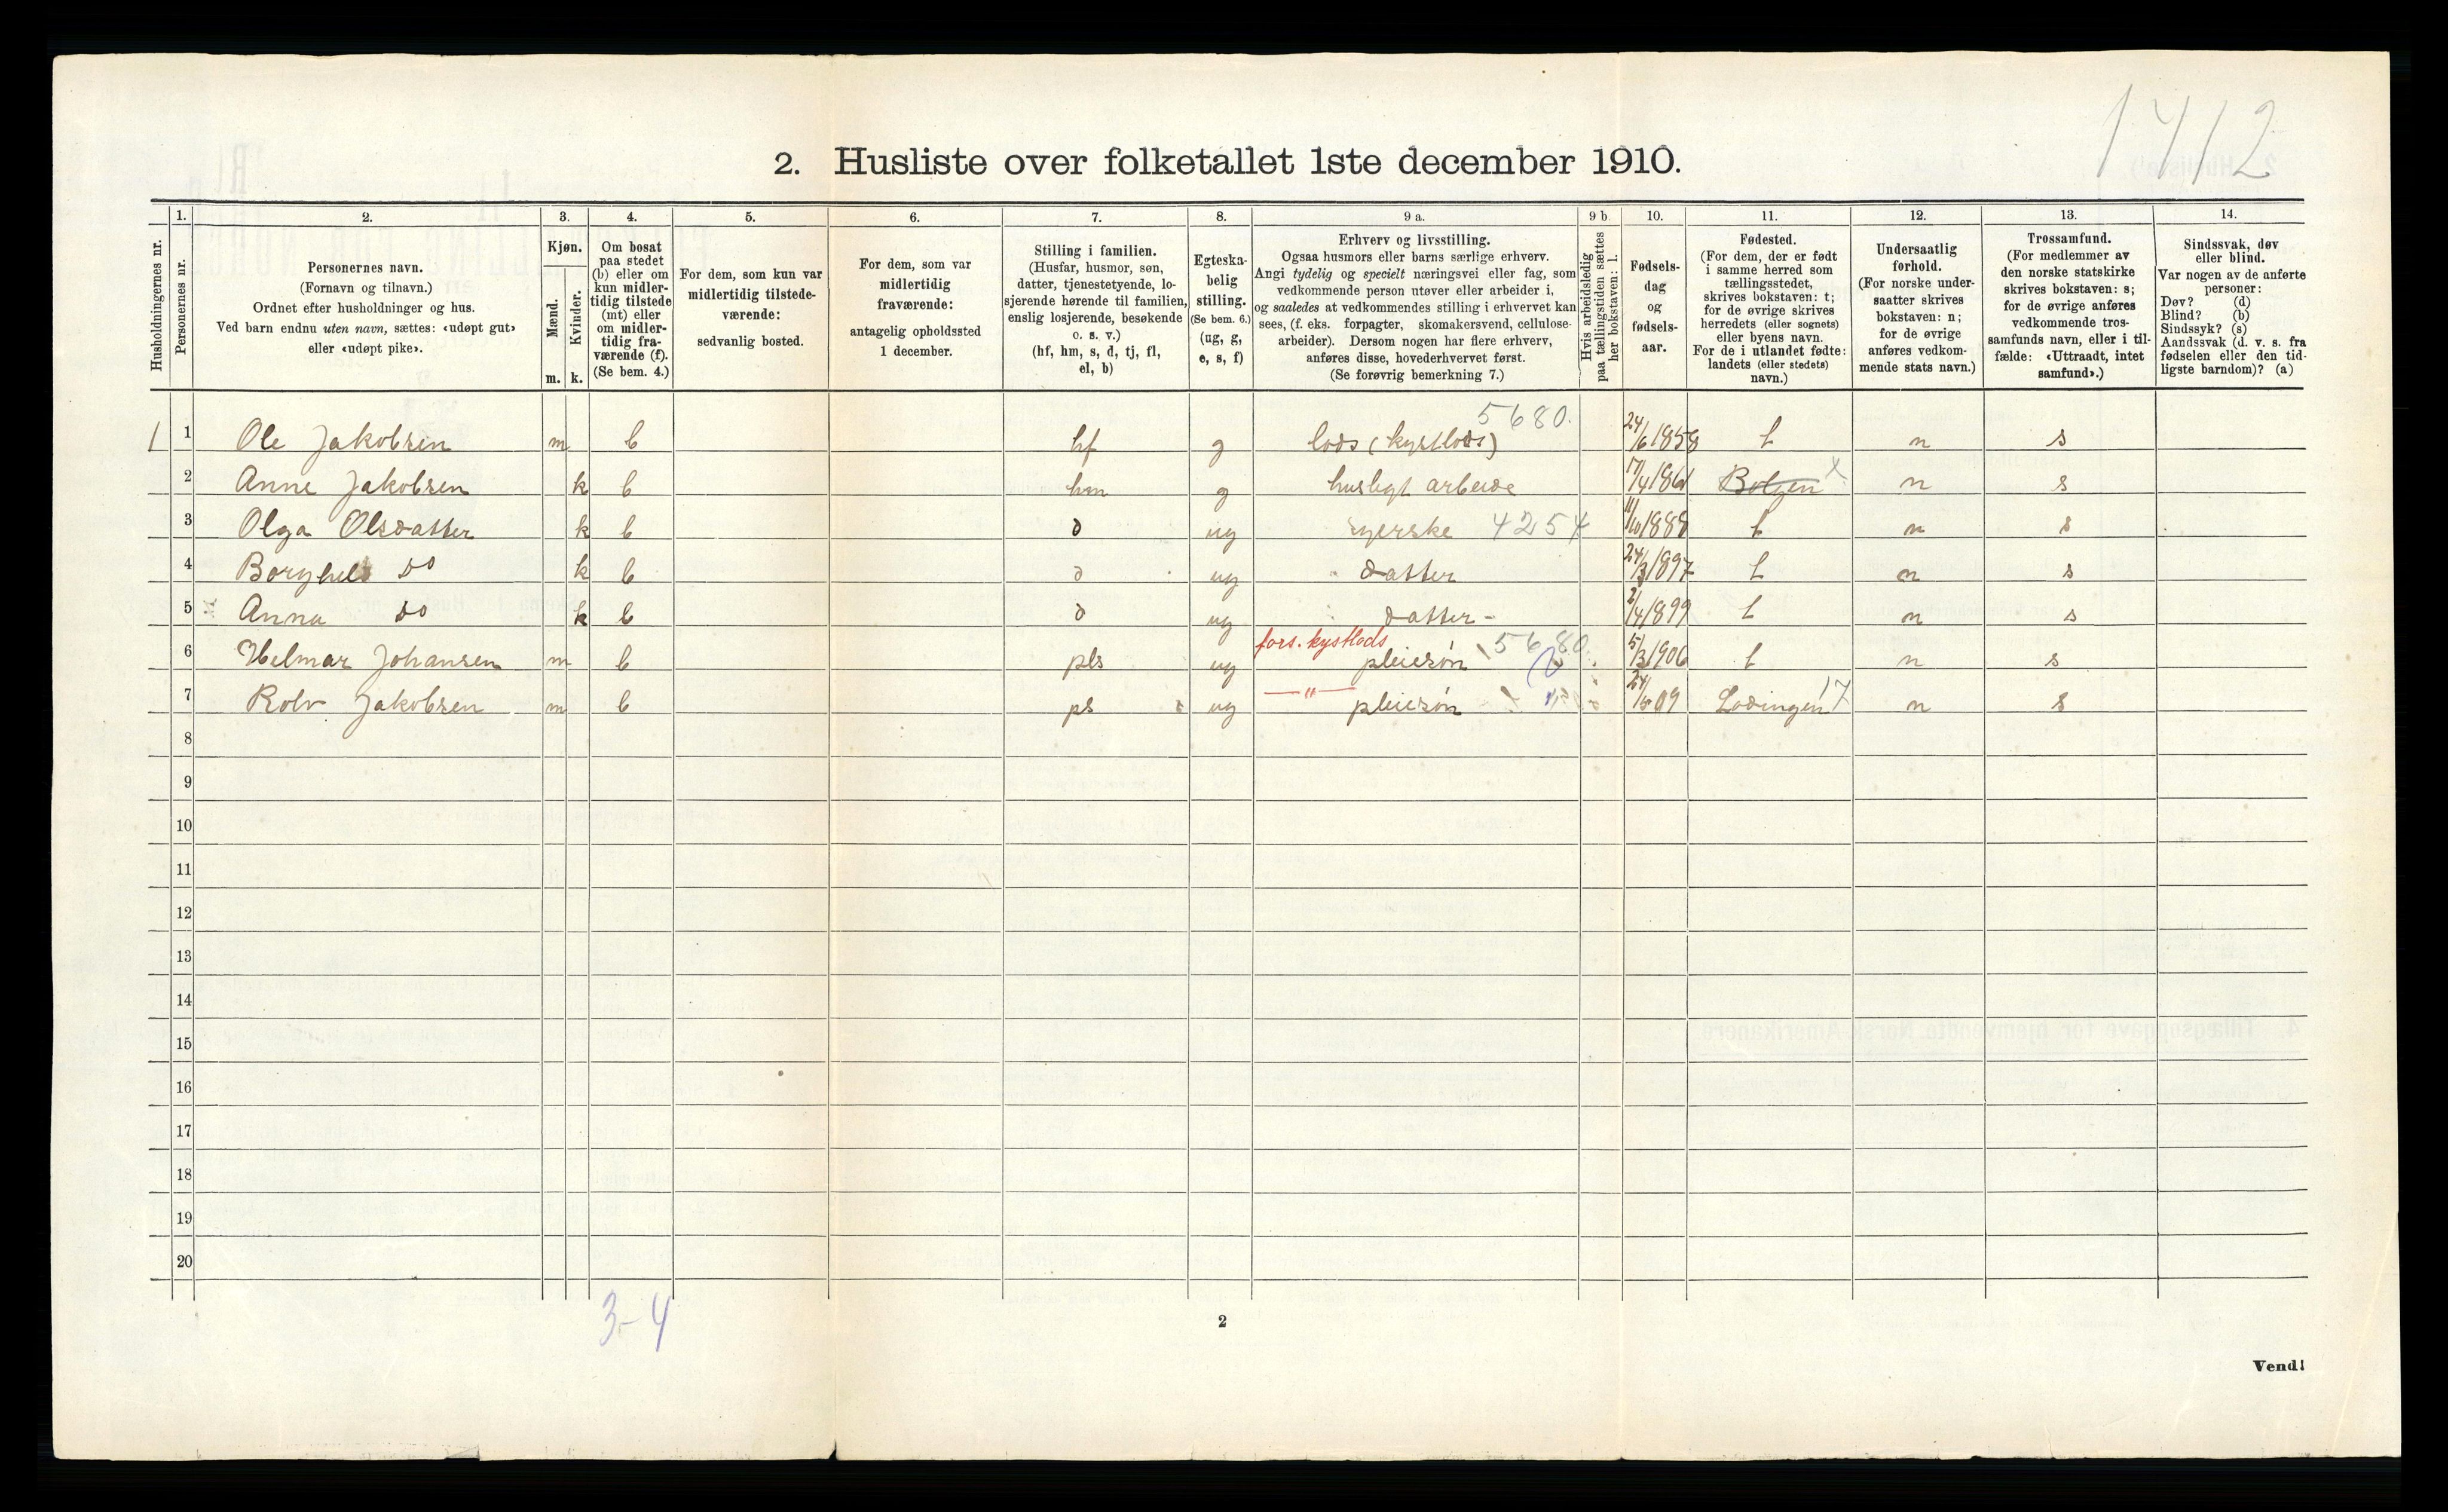 1412
2. Husliste over folketallet 1ste december 1910.
Husholdningernes nr.
1. 2. 3. 4. 5. 6. 7. 8. 9 a. 9 b. 10. 11. 12. 13. 14.
Personernes nr.
Personernes navn.
(Fornavn og tilnavn.)
Ordnet efter husholdninger og hus.
Ved barn endnu uten navn, sættes: «udøpt gut»
eller «udøpt pike».
Kjøn.
Mænd.
Kvinder.
m. k.
Om bosat
paa stedet
(b) eller om
kun midler-
tidig tilstede
(mt) eller
om midler-
tidig fra-
værende (f).
(Se bem. 4.)
For dem, som kun var
midlertidig tilstede-
værende:
sedvanlig bosted.
For dem, som var
midlertidig
fraværende:
antagelig opholdssted
1 december.
Stilling i familien.
(Husfar, husmor, søn,
datter, tjenestetyende, lo-
sjerende hørende til familien,
enslig losjerende, besøkende
o. s. v.)
(hf, hm, s, d, tj, fl,
el, b)
Egteska-
belig
stilling.
(Se bem. 6.)
(ug, g,
e, s, f)
Erhverv og livsstilling.
Ogsaa husmors eller barns særlige erhverv.
Angi tydelig og specielt næringsvei eller fag, som
vedkommende person utøver eller arbeider i,
og saaledes at vedkommendes stilling i erhvervet kan
sees, (f. eks. forpagter, skomakersvend, cellulose-
arbeider). Dersom nogen har flere erhverv,
anføres disse, hovederhvervet først.
(Se forøvrig bemerkning 7.)
Hvis arbeidsledig
paa tællingstiden sættes
her bokstaven: l.
Fødsels-
dag
og
fødsels-
aar.
Fødested.
(For dem, der er født
i samme herred som
tællingsstedet,
skrives bokstaven: t;
for de øvrige skrives
herredets (eller sognets)
eller byens navn.
For de i utlandet fødte:
landets (eller stedets)
navn.)
Undersaatlig
forhold.
(For norske under-
saatter skrives
bokstaven: n;
for de øvrige
anføres vedkom-
mende stats navn.)
Trossamfund.
(For medlemmer av
den norske statskirke
skrives bokstaven: s;
for de øvrige anføres
vedkommende tros-
samfunds navn, eller i til-
fælde: «Uttraadt, intet
samfund».)
Sindssvak, døv
eller blind.
Var nogen av de anførte
personer:
Døv? (d)
Blind? (b)
Sindssyk? (s)
Aandssvak (d. v. s. fra
fødselen eller den tid-
ligste barndom)? (a)
5680.
1 1 Ole Jakobsen m b hf g lods (kystlods) 24/6 1858 t n s
2 Anne Jakobsen k b hm g husligt arbeide 17/4 1861 n s
3 Olga Olsdatter k b d ug syerske 4254 11/10 1888 t n s
4 Borghild do k b d ug datter 24/3 1897 t n s
5 Anna do k b d ug datter - 2/4 1899 t n s
fors. kystlods
6 Helmar Johansen m b pls ug pleiesøn 5680 5/3 1906 t n s
7 Rolv Jakobsen m b ps ug —"— pleiesøn 09 Lødingen 17 n s
8
9
10
11
12
13
14
15
16
17
18
19
20
3-4
2
Vend!